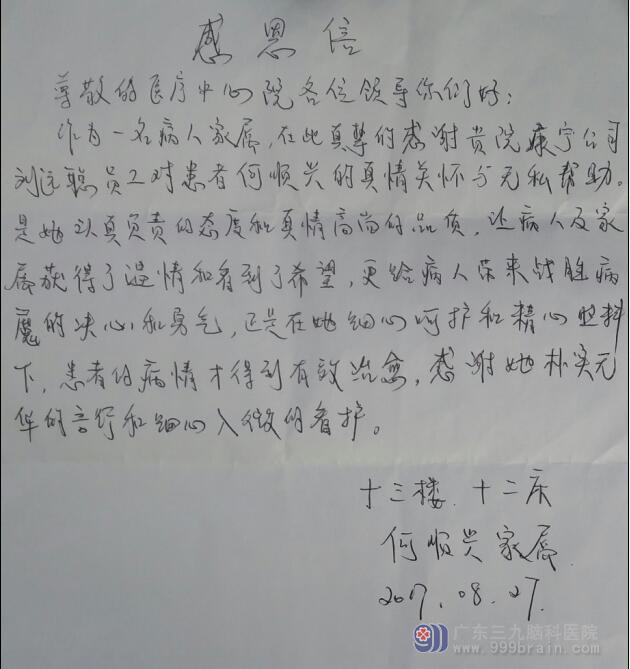 感恩信
尊敬的医疗中心院各位领导你们好：
作为一名病人家属，在此真挚的感谢贵院康宁公司
刘远聪员工对患者何顺兴的真情关怀与无私帮助。
是她认真负责的态度和真情高尚的品质，让病人及家
属获得了温情和看到了希望，更给病人带来战胜病
魔的决心和勇气，正是在她细心呵护和精心照料
下，患者的病情才得到有效治愈，感谢她朴实无
华的言行和细心入微的看护。
十三楼.十二床
何顺兴家属
2017.08.27.
广东三九脑科医院
www.999brain.com